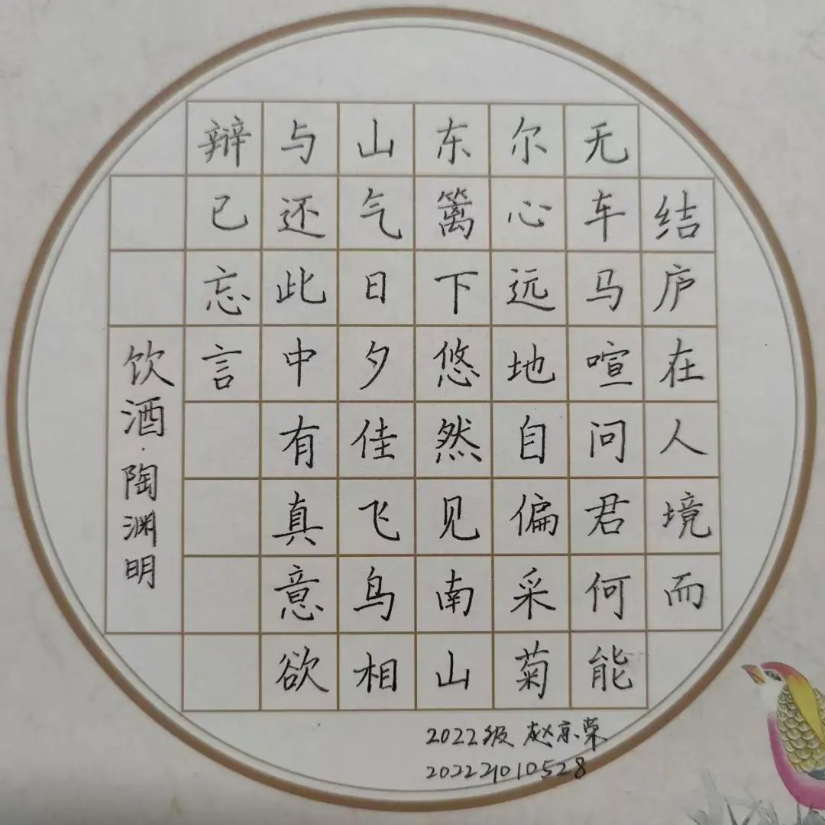 结庐在人境而
无车马喧问君何能
尔心远地自偏采菊
东篱下悠然见南山
山气日夕佳飞鸟相
与还此中有真意欲
辩已忘言
饮酒·陶渊明
2022级 赵京荣
20222010528